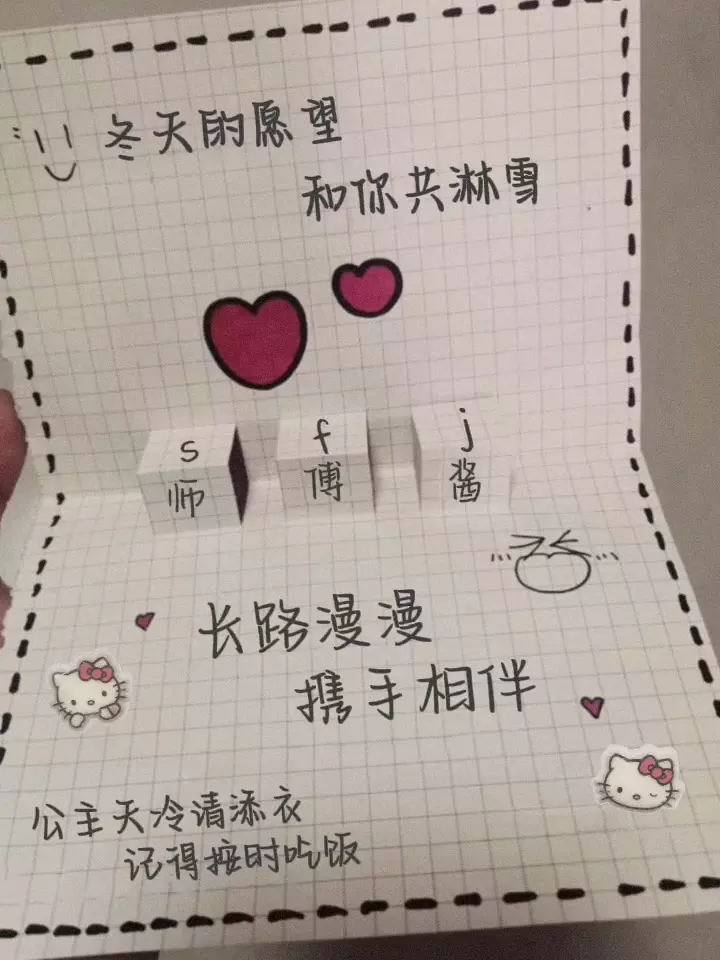 冬天的愿望
和你共淋雪
s f j
师 傅 酱
长路漫漫
携手相伴
公主天冷请添衣
记得按时吃饭